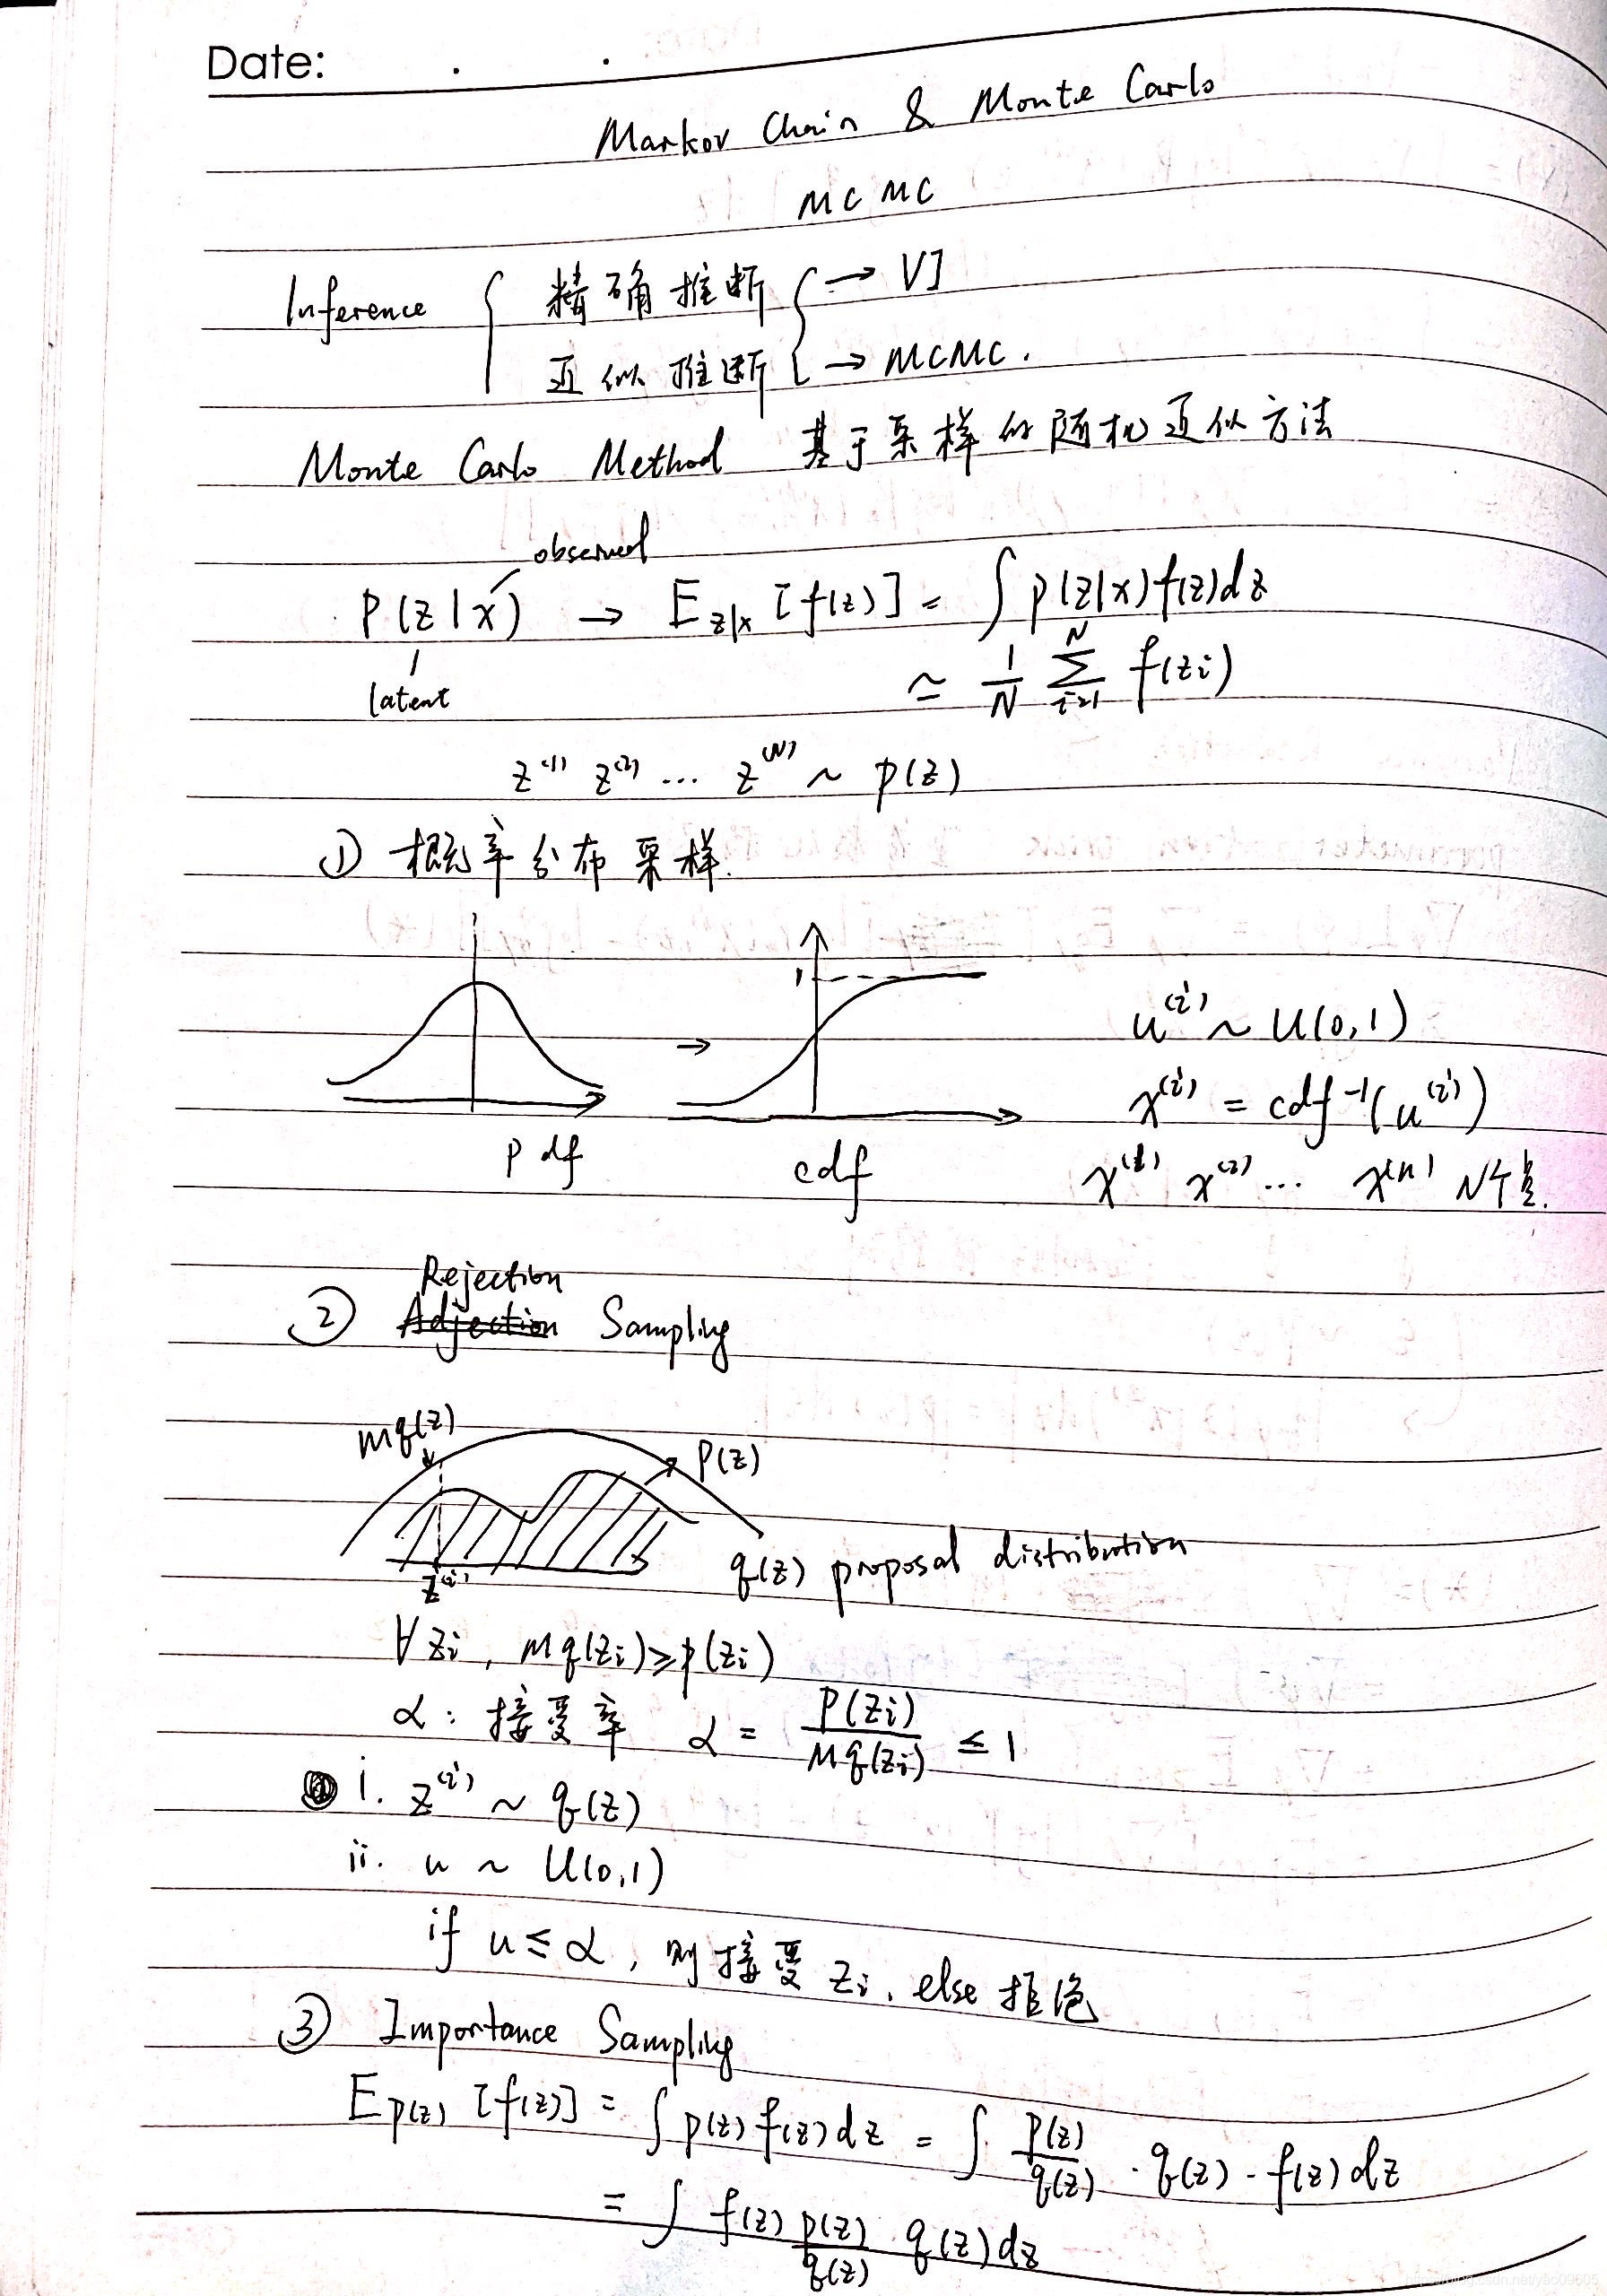 Date:
Markov Chain & Monte Carlo
MCMC
Inference { 精确推断 { → VI
近似推断 → MCMC.
Monte Carlo Method 基于采样的随机近似方法
observed
P(z|x) → E_{z|x} [f(z)] = ∫ p(z|x) f(z) dz
latent
≃ \frac{1}{N} \sum_{i=1}^{N} f(z_i)
z^{(1)} z^{(2)} ... z^{(N)} ~ p(z)
① 概率分布采样.
1
u^{(i)} ~ U(0,1)
→
x^{(i)} = cdf^{-1}(u^{(i)})
pdf
cdf
x^{(1)} x^{(2)} ... x^{(n)} N个点.
Rejection
② Adjection Sampling
Mq(z)
P(z)
z^{(i)}
q(z) proposal distribution
∀ z_i, Mq(z_i) ≥ p(z_i)
α: 接受率 α = \frac{P(z_i)}{Mq(z_i)} ≤ 1
i. z^{(i)} ~ q(z)
ii. u ~ U(0,1)
if u ≤ α, 则接受 z_i, else 拒绝
③ Importance Sampling
E_{p(z)} [f(z)] = ∫ p(z) f(z) dz = ∫ \frac{P(z)}{q(z)} · q(z) · f(z) dz
= ∫ f(z) \frac{p(z)}{q(z)} q(z) dz